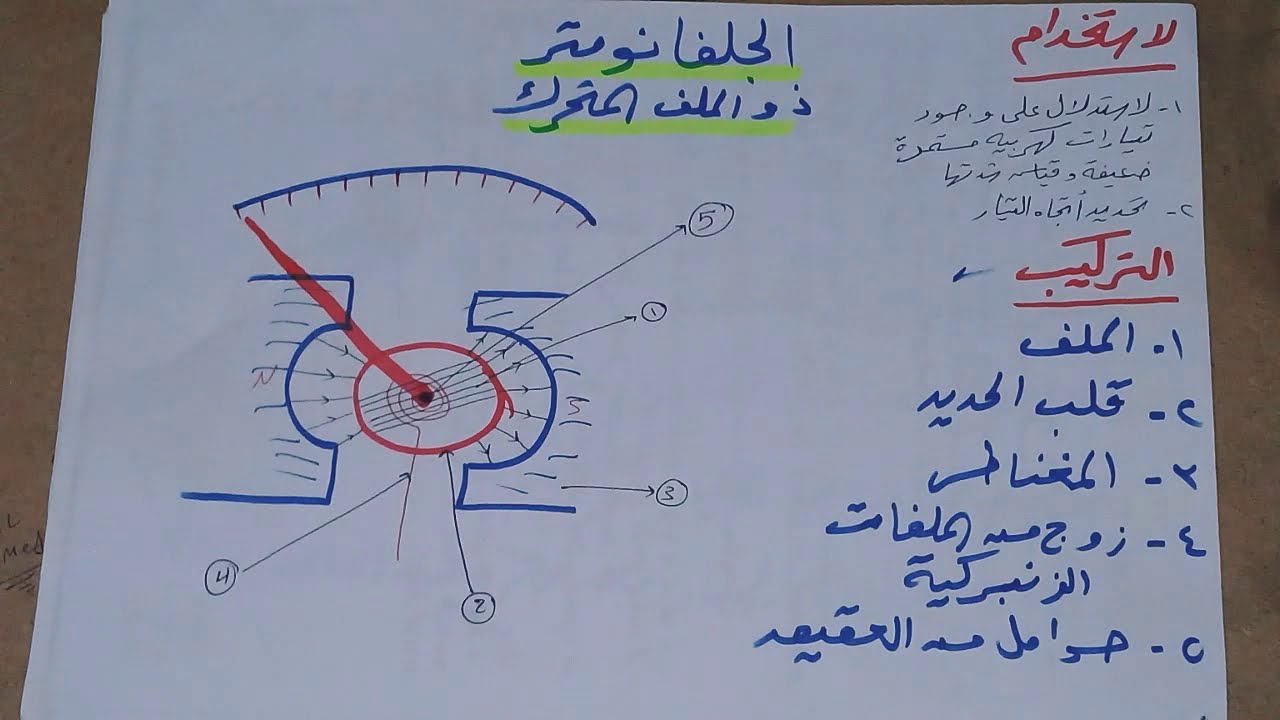 الجلفانومتر
ذو الملف المتحرك
لاستخدام
١- لاستدلال على وجود
تيارات كهربيه مستمرة
ضعيفة وقياس شدتها
٢- تحديد أتجاه التيار
التركيب
١- الملف
٢- قلب الحديد
٣- المغناطس
٤- زوج من الملفات
الزنبركية
٥- حوامل من العقيق
5
1
N
S
3
4
2